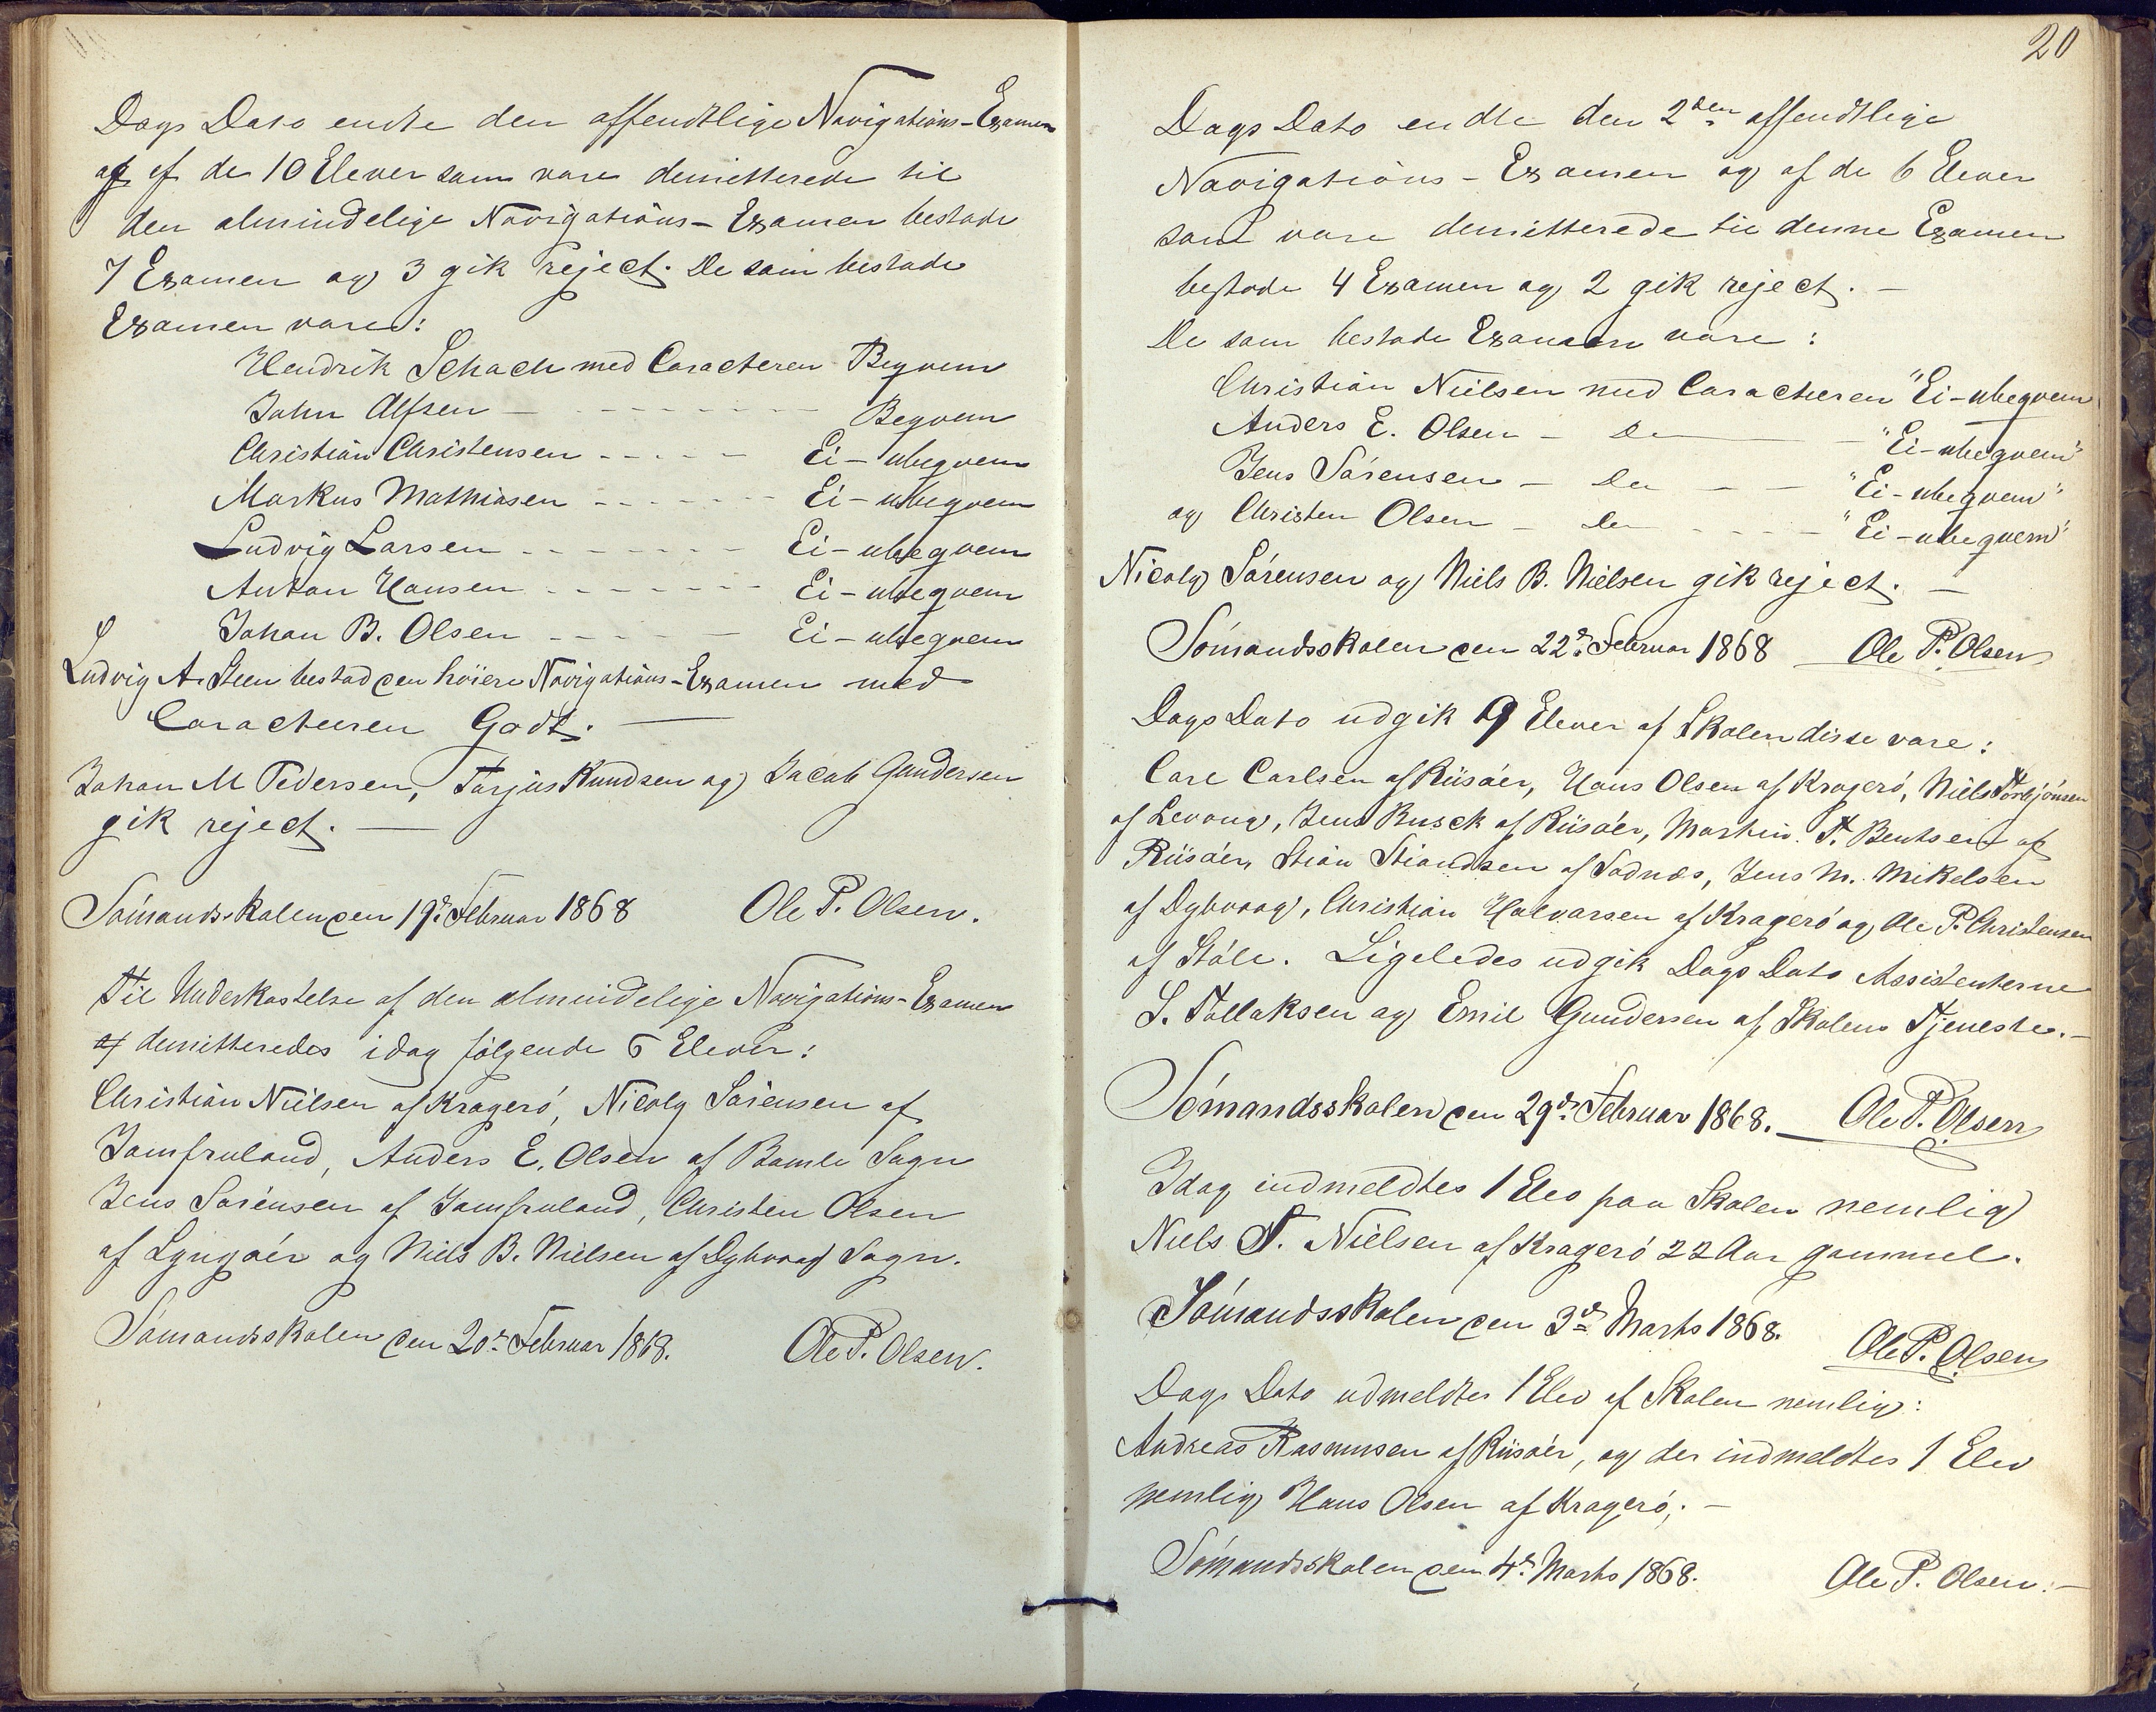 Dags Dato endte den offendtlige Navigations-Examen
og af de 10 Elever som vare demitterede til
den almindelige Navigations-Examen bestode
7 Examen og 3 gik reject. De som bestode
Examen vare:
Hendrik Schach med Caracteren Beqvem
John Alfsen - - - - - - - Beqvem
Christian Christensen - - - - - Ei-ubeqvem
Markus Mathiasen - - - - - - Ei-ubeqvem
Ludvig Larsen - - - - - - - Ei-ubeqvem
Anton Hansen - - - - - - - Ei-ubeqvem
Johan B. Olsen - - - - - Ei-ubeqvem
Ludvig A. Steen bestod den höiere Navigations-Examen med
Caracteeren Godt. —
Johan M Pedersen, Tarjus Knudsen og Jacob Gundersen
gik reject. —
Sömandsskolen den 19de Februar 1868 Ole P. Olsen.
Til Underkastelse af den almindelige Navigations-Examen
af demitteredes idag fölgende 6 Elever:
Christian Nielsen af Kragerö, Nicoly Sörensen af
Jomfruland, Anders E. Olsen af Bamle Sogn
Jens Sörensen af Jomfruland, Christen Olsen
af Lyngöer og Niels B. Nielsen af Dybvaag Sogn.
Sömandsskolen den 20de Februar 1868. Ole P. Olsen.
20
Dags Dato endte den 2den offendtlige
Navigations-Examen og af de 6 Elever
som vare demitterede til denne Examen
bestode 4 Examen og 2 gik reject. —
De som bestode Examen vare:
Christian Nielsen med Caracteren "Ei-ubeqvem
Anders E. Olsen - Do — "Ei-ubeqvem"
Jens Sörensen - Do - - "Ei-ubeqvem"
og Christen Olsen - Do - - - - "Ei-ubeqvem"
Nicoly Sörensen og Niels B. Nielsen gik reject. —
Sömandsskolen den 22de Februar 1868 Ole P. Olsen
Dags Dato udgik 9 Elever af Skolen disse vare:
Carl Carlsen af Riisöer, Hans Olsen af Kragerö, Niels Torbjönsen
af Levang, Jens Busck af Riisöer, Martin T. Bentsen af
Riisöer, Stian Stiandsen af Sødnæs, Jens M. Mikelsen
af Dybvaag, Christian Halvorsen af Kragerö og Ole P. Christensen
af Støle. Ligeledes udgik Dags Dato Assistenterne
S. Tollaksen og Emil Gundersen af Skolens Tjeneste. —
Sömandsskolen den 29de Februar 1868. Ole P. Olsen
Idag indmeldtes 1 Elev paa Skolen nemlig
Niels T. Nielsen af Kragerö 22 Aar gammel.
Sömandsskolen den 3de Marts 1868. Ole P. Olsen
Dags Dato udmeldtes 1 Elev af Skolen nemlig:
Andreas Rasmussen af Riisöer, og der indmeldtes 1 Elev
nemlig Hans Olsen af Kragerö. —
Sömandsskolen den 4de Marts 1868. Ole P. Olsen. —